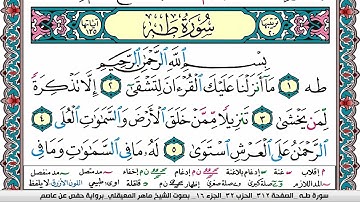 سُورَةُ طه
بِسْمِ ٱللَّهِ ٱلرَّحْمَٰنِ ٱلرَّحِيمِ
طه ١ مَآ أَنزَلْنَا عَلَيْكَ ٱلْقُرْءَانَ لِتَشْقَىٰٓ ٢ إِلَّا تَذْكِرَةً
لِّمَن يَخْشَىٰ ٣ تَنزِيلًا مِّمَّنْ خَلَقَ ٱلْأَرْضَ وَٱلسَّمَٰوَٰتِ ٱلْعُلَى ٤
ٱلرَّحْمَٰنُ عَلَى ٱلْعَرْشِ ٱسْتَوَىٰ ٥ لَهُۥ مَا فِى ٱلسَّمَٰوَٰتِ وَمَا فِى
سورة طـه - الصفحة ٣١٢ - الحزب ٣٢ - الجزء ١٦ - بصوت الشيخ ماهر المعيقلي - برواية حفص عن عاصم